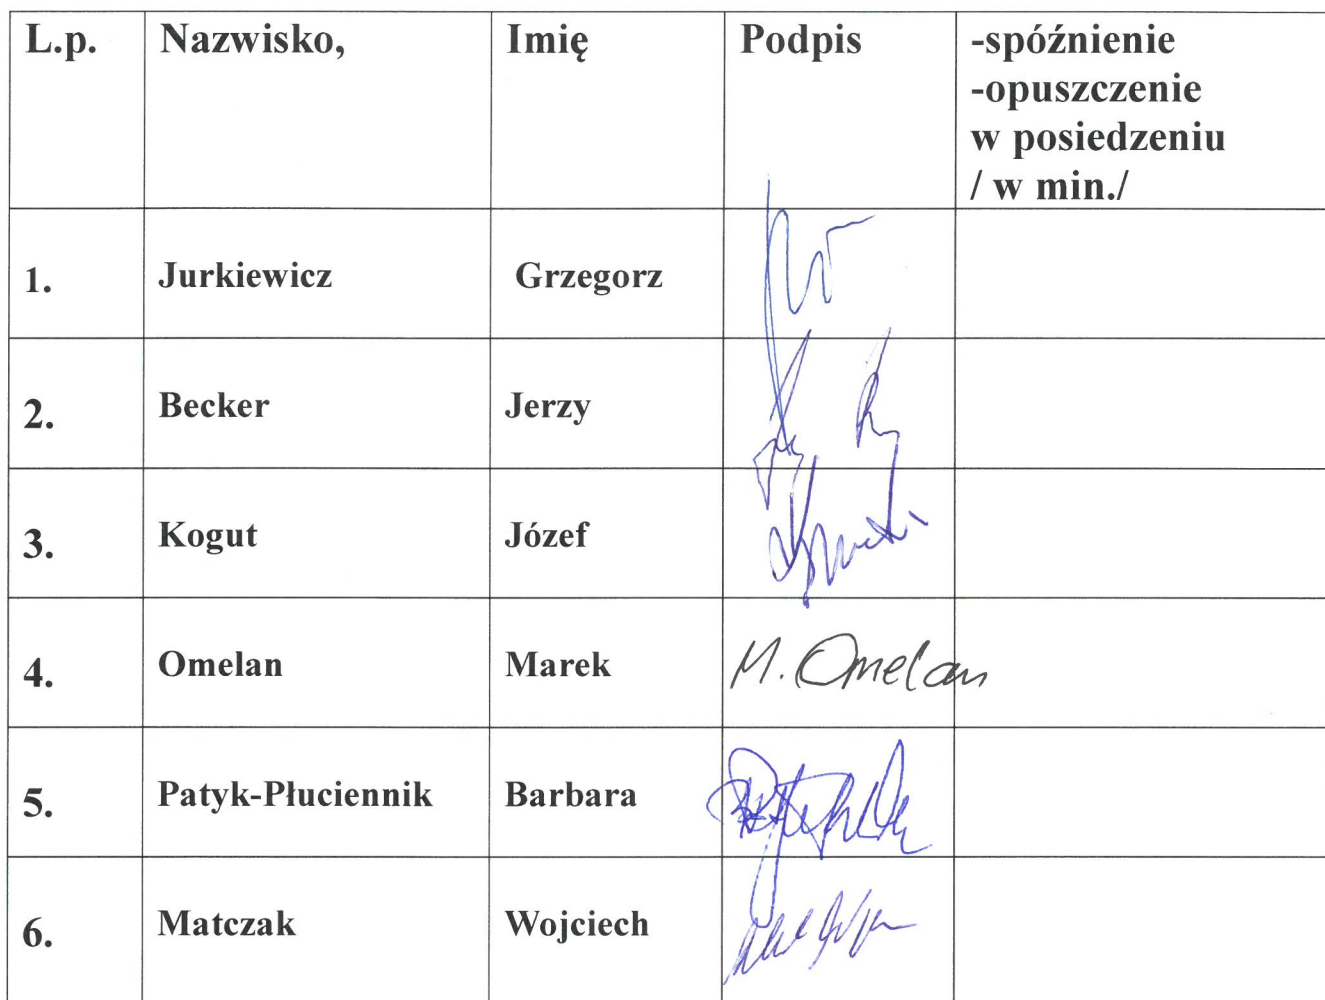 L.p. Nazwisko, Imię Podpis -spóźnienie
-opuszczenie
w posiedzeniu
/ w min./
1. Jurkiewicz Grzegorz
2. Becker Jerzy
3. Kogut Józef
4. Omelan Marek M. Omelan
5. Patyk-Płuciennik Barbara
6. Matczak Wojciech